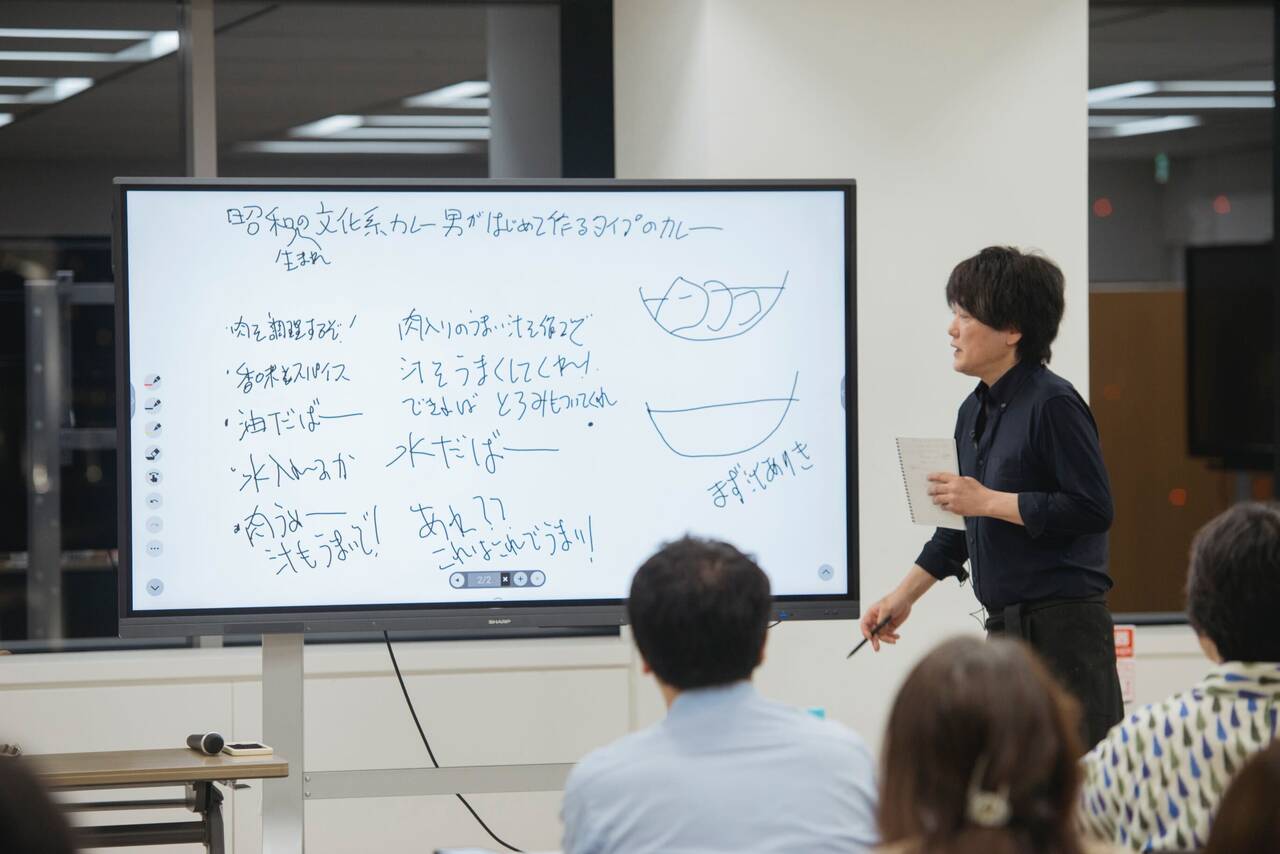 昭和の文化系カレー男がはじめて作るタイプのカレー
生まれ
・肉を調理するぞ!
・香味もスパイス
・油だばー
・水入れるか
・肉うめー
汁もうまいで!
肉入りのうまい汁を作るで
汁をうまくしてくれー!
できればとろみもついてくれ
水だばー
あれ??
これはこれでうまい!
まず汁ありき
2/2
SHARP